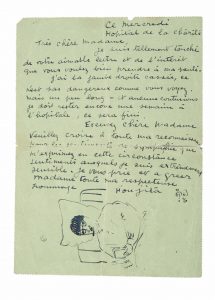 Ce mercredi
Hopital de la Charité
Très chère Madame
Je suis tellement touché
de votre aimable lettre et de l'interet
que vous voulez bien prendre à ma santé.
J'ai la jambe droite cassée, ce
n'est pas dangereux comme vous voyez
mais un peu long et
je dois rester encore une semaine à
l'hopital ce sera fini
Excusez chère Madame
Veuillez croire à toute ma reconnaissance
sympathie que
m'exprimez en cette circonstance
sentiments auxquels je suis extremement
sensible. Je vous prie d'agreer
madame toute ma respectueuse
hommage
Foujita